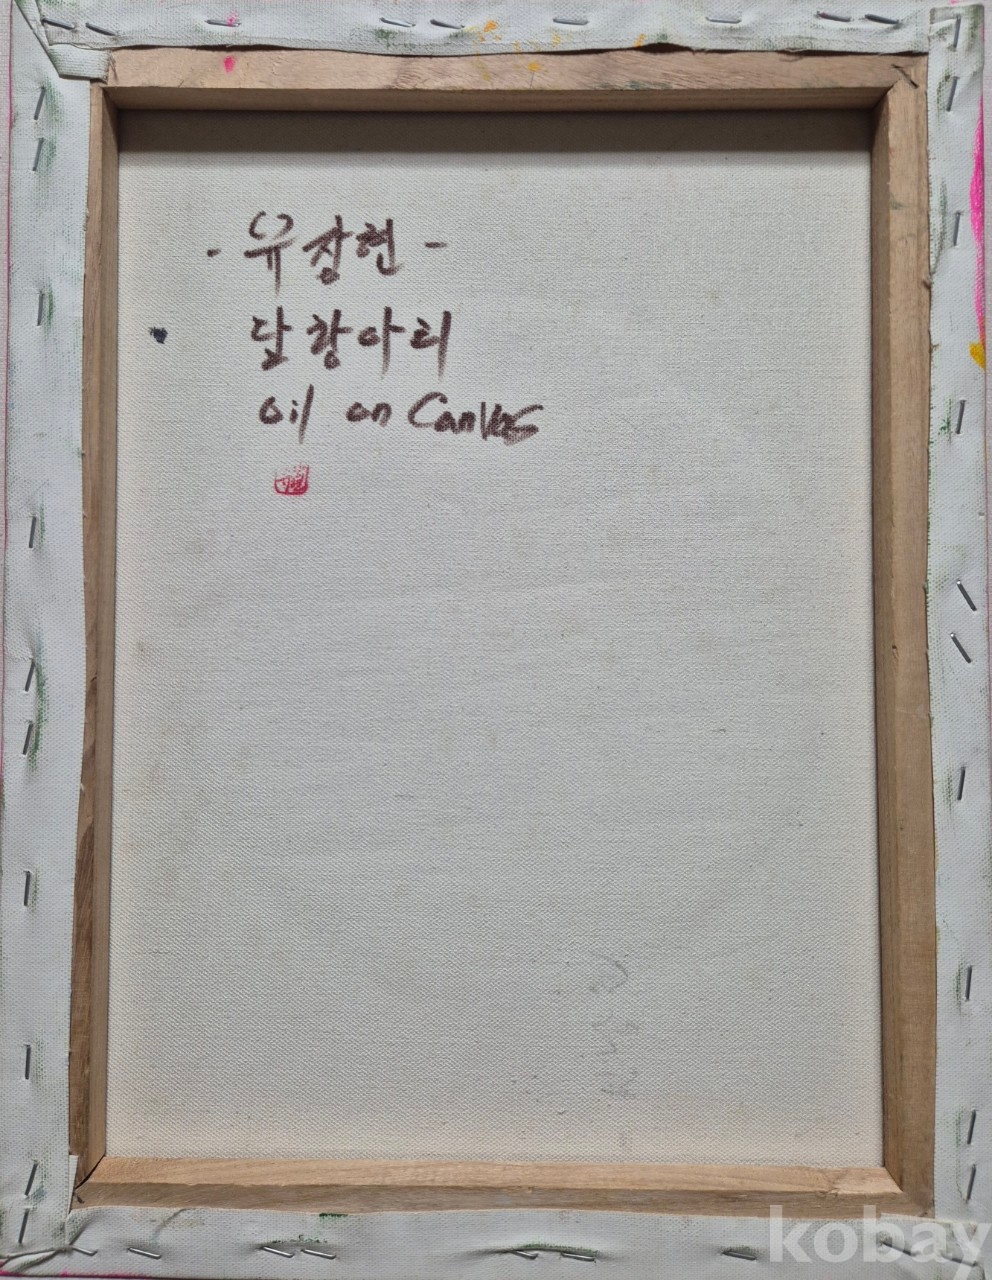 - 유장현 -
달항아리
oil on Canvas
kobay